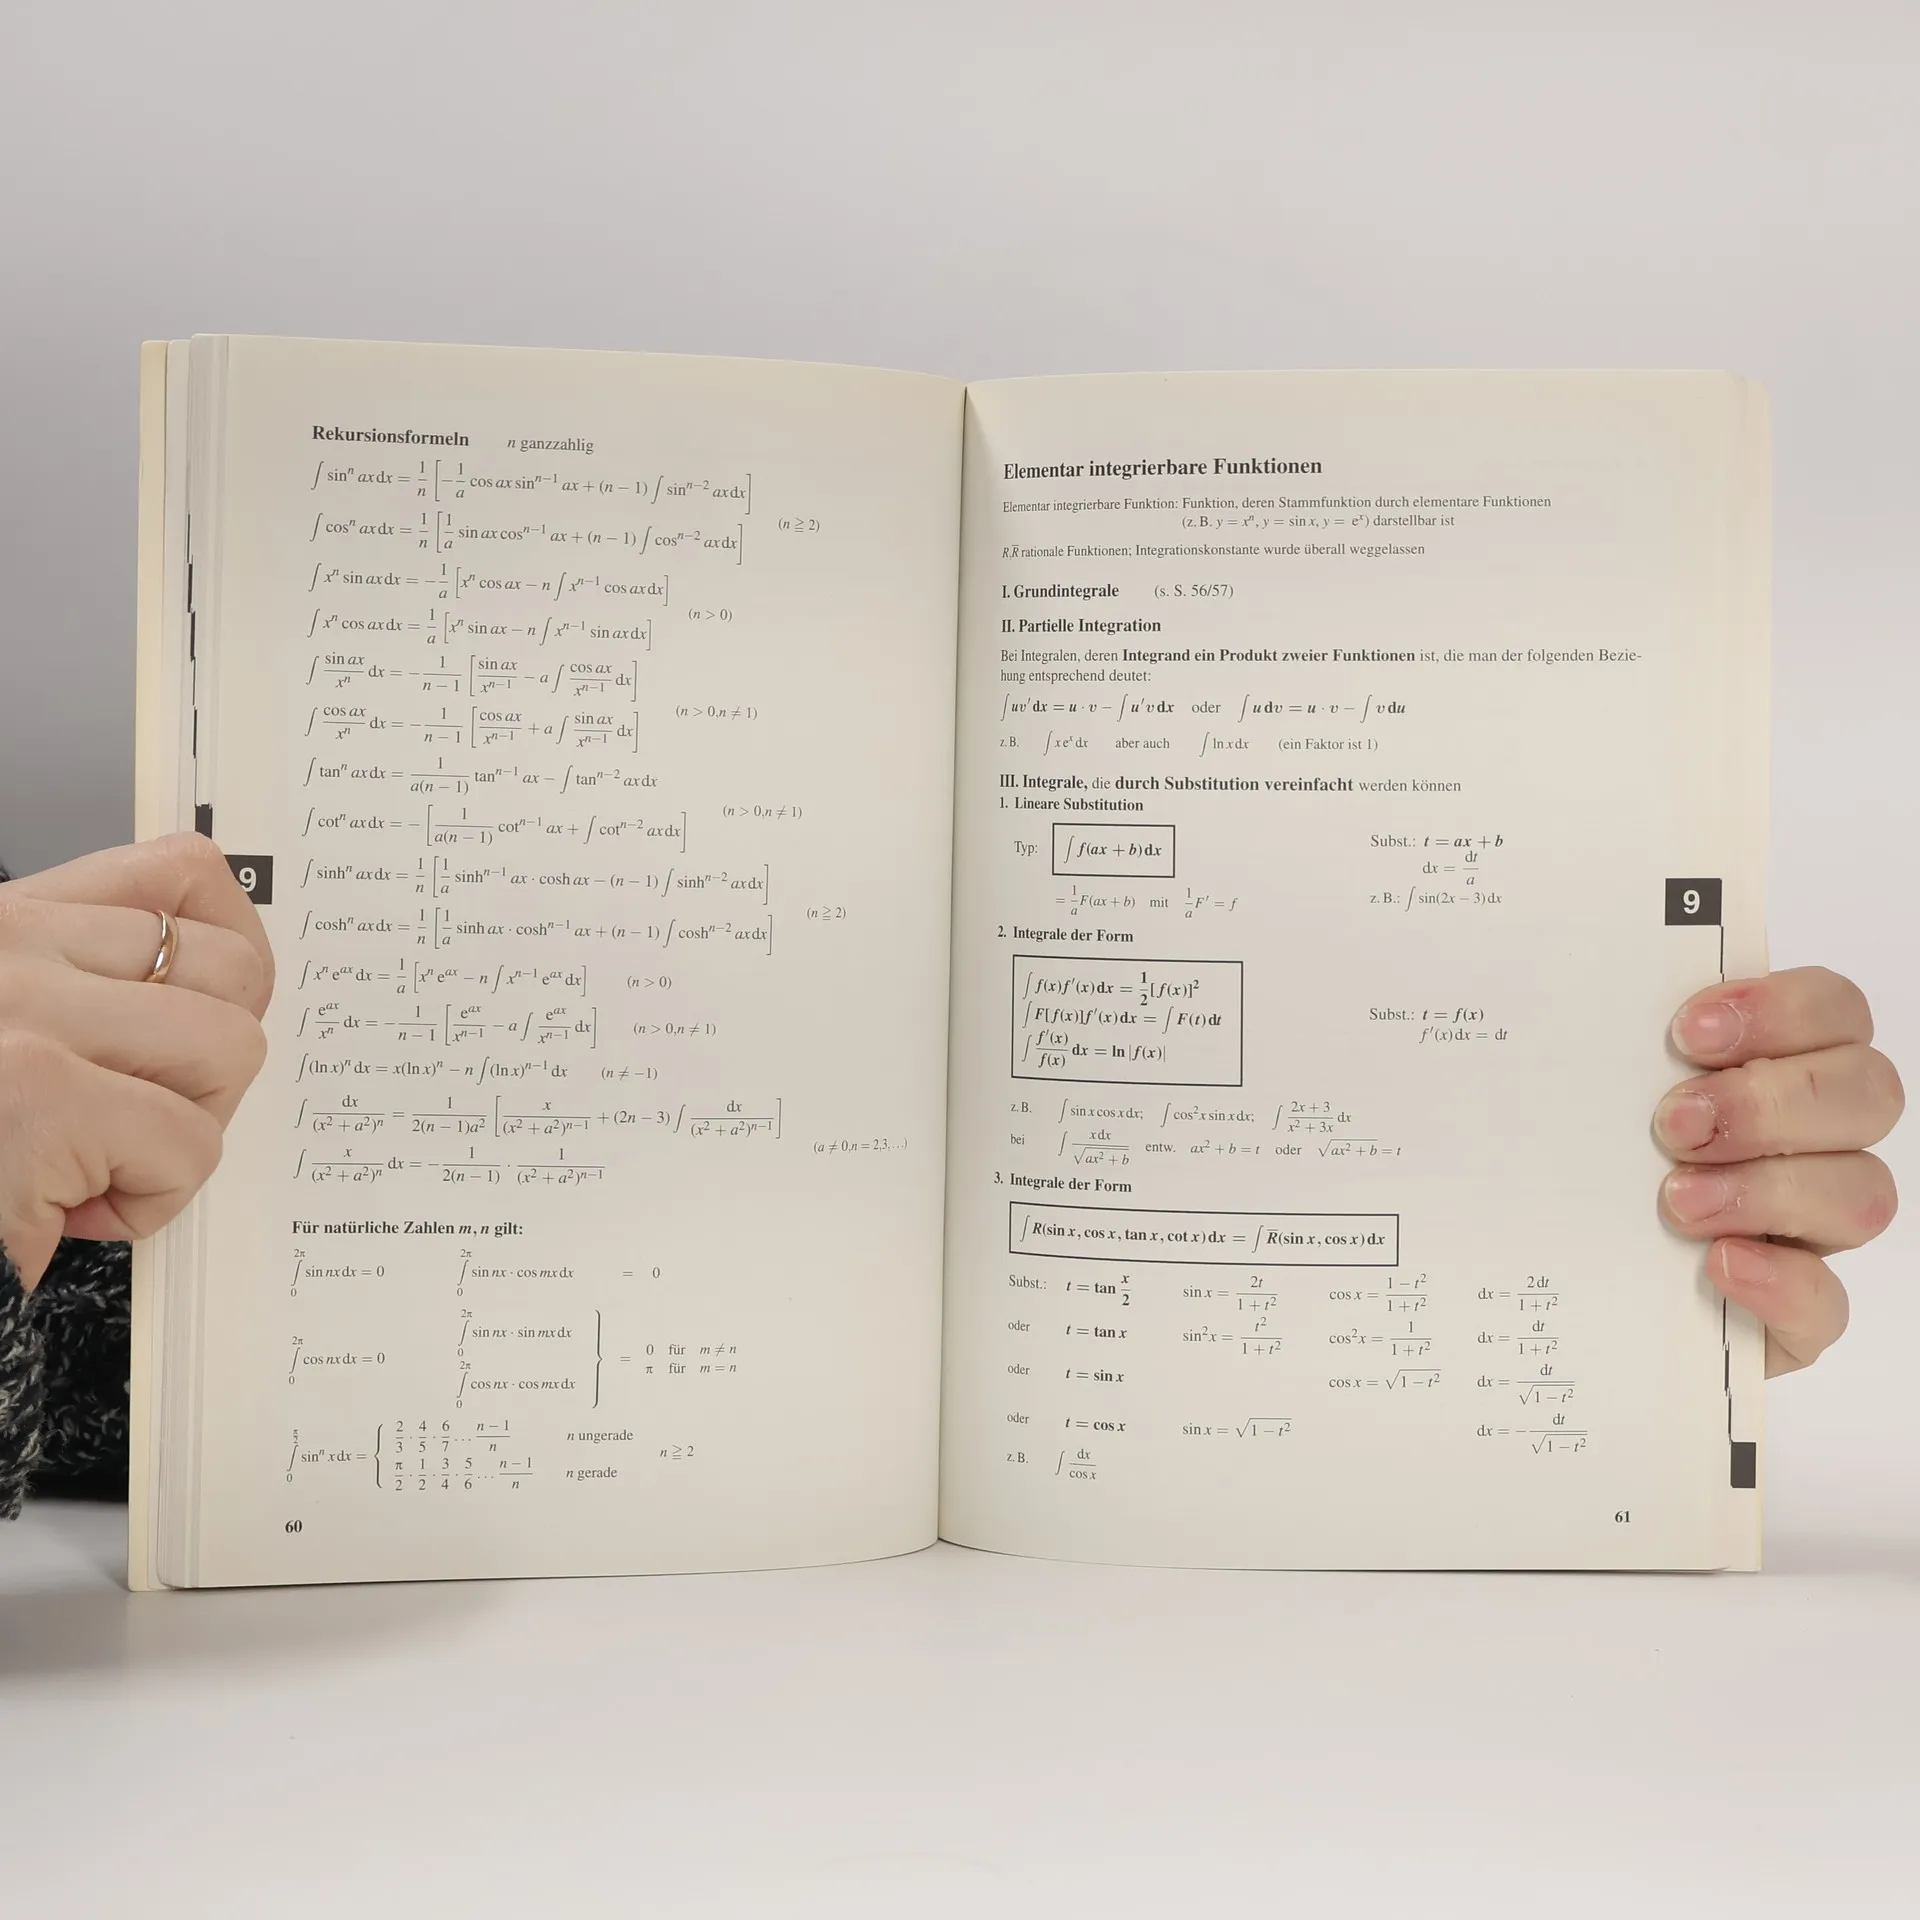 Rekursionsformeln n ganzzahlig
∫ sinⁿ ax dx = 1/n [−1/a cos ax sinⁿ⁻¹ ax + (n − 1) ∫ sinⁿ⁻² ax dx]
∫ cosⁿ ax dx = 1/n [1/a sin ax cosⁿ⁻¹ ax + (n − 1) ∫ cosⁿ⁻² ax dx] (n ≧ 2)
∫ xⁿ sin ax dx = −1/a [xⁿ cos ax − n ∫ xⁿ⁻¹ cos ax dx]
∫ xⁿ cos ax dx = 1/a [xⁿ sin ax − n ∫ xⁿ⁻¹ sin ax dx] (n > 0)
∫ sin ax/xⁿ dx = −1/(n − 1) [sin ax/xⁿ⁻¹ − a ∫ cos ax/xⁿ⁻¹ dx]
∫ cos ax/xⁿ dx = −1/(n − 1) [cos ax/xⁿ⁻¹ + a ∫ sin ax/xⁿ⁻¹ dx] (n > 0,n ≠ 1)
∫ tanⁿ ax dx = 1/(a(n − 1)) tanⁿ⁻¹ ax − ∫ tanⁿ⁻² ax dx
∫ cotⁿ ax dx = −[1/(a(n − 1)) cotⁿ⁻¹ ax + ∫ cotⁿ⁻² ax dx] (n > 0,n ≠ 1)
∫ sinhⁿ ax dx = 1/n [1/a sinhⁿ⁻¹ ax · cosh ax − (n − 1) ∫ sinhⁿ⁻² ax dx]
∫ coshⁿ ax dx = 1/n [1/a sinh ax · coshⁿ⁻¹ ax + (n − 1) ∫ coshⁿ⁻² ax dx] (n ≧ 2)
∫ xⁿ eᵃˣ dx = 1/a [xⁿ eᵃˣ − n ∫ xⁿ⁻¹ eᵃˣ dx] (n > 0)
∫ eᵃˣ/xⁿ dx = −1/(n − 1) [eᵃˣ/xⁿ⁻¹ − a ∫ eᵃˣ/xⁿ⁻¹ dx] (n > 0,n ≠ 1)
∫ (ln x)ⁿ dx = x(ln x)ⁿ − n ∫ (ln x)ⁿ⁻¹ dx (n ≠ −1)
∫ dx/(x² + a²)ⁿ = 1/(2(n − 1)a²) [x/(x² + a²)ⁿ⁻¹ + (2n − 3) ∫ dx/(x² + a²)ⁿ⁻¹]
(a ≠ 0,n = 2,3,…)
∫ x/(x² + a²)ⁿ dx = −1/(2(n − 1)) · 1/(x² + a²)ⁿ⁻¹
Für natürliche Zahlen m, n gilt:
∫₀^2π sin nx dx = 0 ∫₀^2π sin nx · cos mx dx = 0
∫₀^2π sin nx · sin mx dx
∫₀^2π cos nx dx = 0 } = 0 für m ≠ n
π für m = n
∫₀^2π cos nx · cos mx dx
∫₀^π/2 sinⁿ x dx = { 2/3 · 4/5 · 6/7 … (n − 1)/n n ungerade
π/2 · 1/2 · 3/4 · 5/6 … (n − 1)/n n gerade n ≧ 2
60
9
Elementar integrierbare Funktionen
Elementar integrierbare Funktion: Funktion, deren Stammfunktion durch elementare Funktionen
(z. B. y = xⁿ, y = sin x, y = eˣ) darstellbar ist
R,R̅ rationale Funktionen; Integrationskonstante wurde überall weggelassen
I. Grundintegrale (s. S. 56/57)
II. Partielle Integration
Bei Integralen, deren Integrand ein Produkt zweier Funktionen ist, die man der folgenden Bezie-
hung entsprechend deutet:
∫ uv′ dx = u · v − ∫ u′v dx oder ∫ u dv = u · v − ∫ v du
z. B. ∫ xeˣ dx aber auch ∫ ln x dx (ein Faktor ist 1)
III. Integrale, die durch Substitution vereinfacht werden können
1. Lineare Substitution
Typ: ∫ f(ax + b) dx Subst.: t = ax + b
dx = dt/a
= 1/a F(ax + b) mit 1/a F′ = f z. B.: ∫ sin(2x − 3) dx
2. Integrale der Form
∫ f(x)f′(x) dx = 1/2 [f(x)]²
∫ F[f(x)]f′(x) dx = ∫ F(t) dt Subst.: t = f(x)
f′(x) dx = dt
∫ f′(x)/f(x) dx = ln |f(x)|
z. B. ∫ sin x cos x dx; ∫ cos² x sin x dx; ∫ (2x + 3)/(x² + 3x) dx
bei ∫ x dx/√(ax² + b) entw. ax² + b = t oder √(ax² + b) = t
3. Integrale der Form
∫ R(sin x, cos x, tan x, cot x) dx = ∫ R̅(sin x, cos x) dx
Subst.: t = tan x/2 sin x = 2t/(1 + t²) cos x = (1 − t²)/(1 + t²) dx = 2 dt/(1 + t²)
oder t = tan x sin² x = t²/(1 + t²) cos² x = 1/(1 + t²) dx = dt/(1 + t²)
oder t = sin x cos x = √(1 − t²) dx = dt/√(1 − t²)
oder t = cos x sin x = √(1 − t²) dx = −dt/√(1 − t²)
z. B. ∫ dx/cos x
61
9